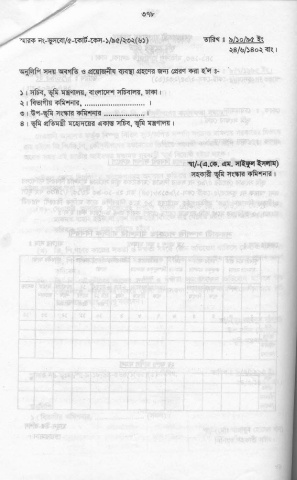 ৩৭৮
স্মারক নং-ভূসবো/৫-কোর্ট-কেস-১/৯৫/২৩২(৬১) তারিখ ঃ ৯/১০/৯৫ ইং
২৪/৬/১৪০২ বাং।
অনুলিপি সদয় অবগতি ও প্রয়োজনীয় ব্যবস্থা গ্রহণের জন্য প্রেরণ করা হ'ল ঃ-
১। সচিব, ভূমি মন্ত্রণালয়, বাংলাদেশ সচিবালয়, ঢাকা।
২। বিভাগীয় কমিশনার, ........................ ।
৩। উপ-ভূমি সংস্কার কমিশনার ................ ।
৪। ভূমি প্রতিমন্ত্রী মহোদয়ের একান্ত সচিব, ভূমি মন্ত্রণালয়।
স্বা/-(এ.কে. এম. সাইফুল ইসলাম)
সহকারী ভূমি সংস্কার কমিশনার।